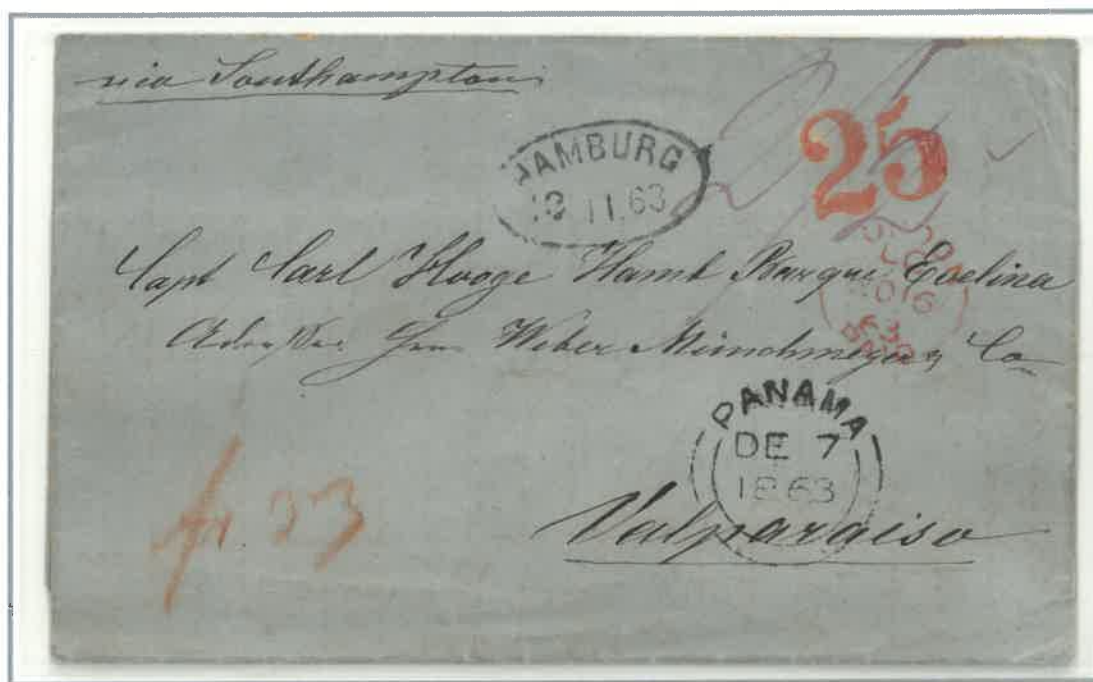 via Southampton
25
HAMBURG
11.63
LONDON
NO 16
63
PAID
Capt Carl Hooge Hamb Barque Evelina
Weber Münchmeyer & Co
PANAMA
DE 7
1863
Valparaiso
fr. 23